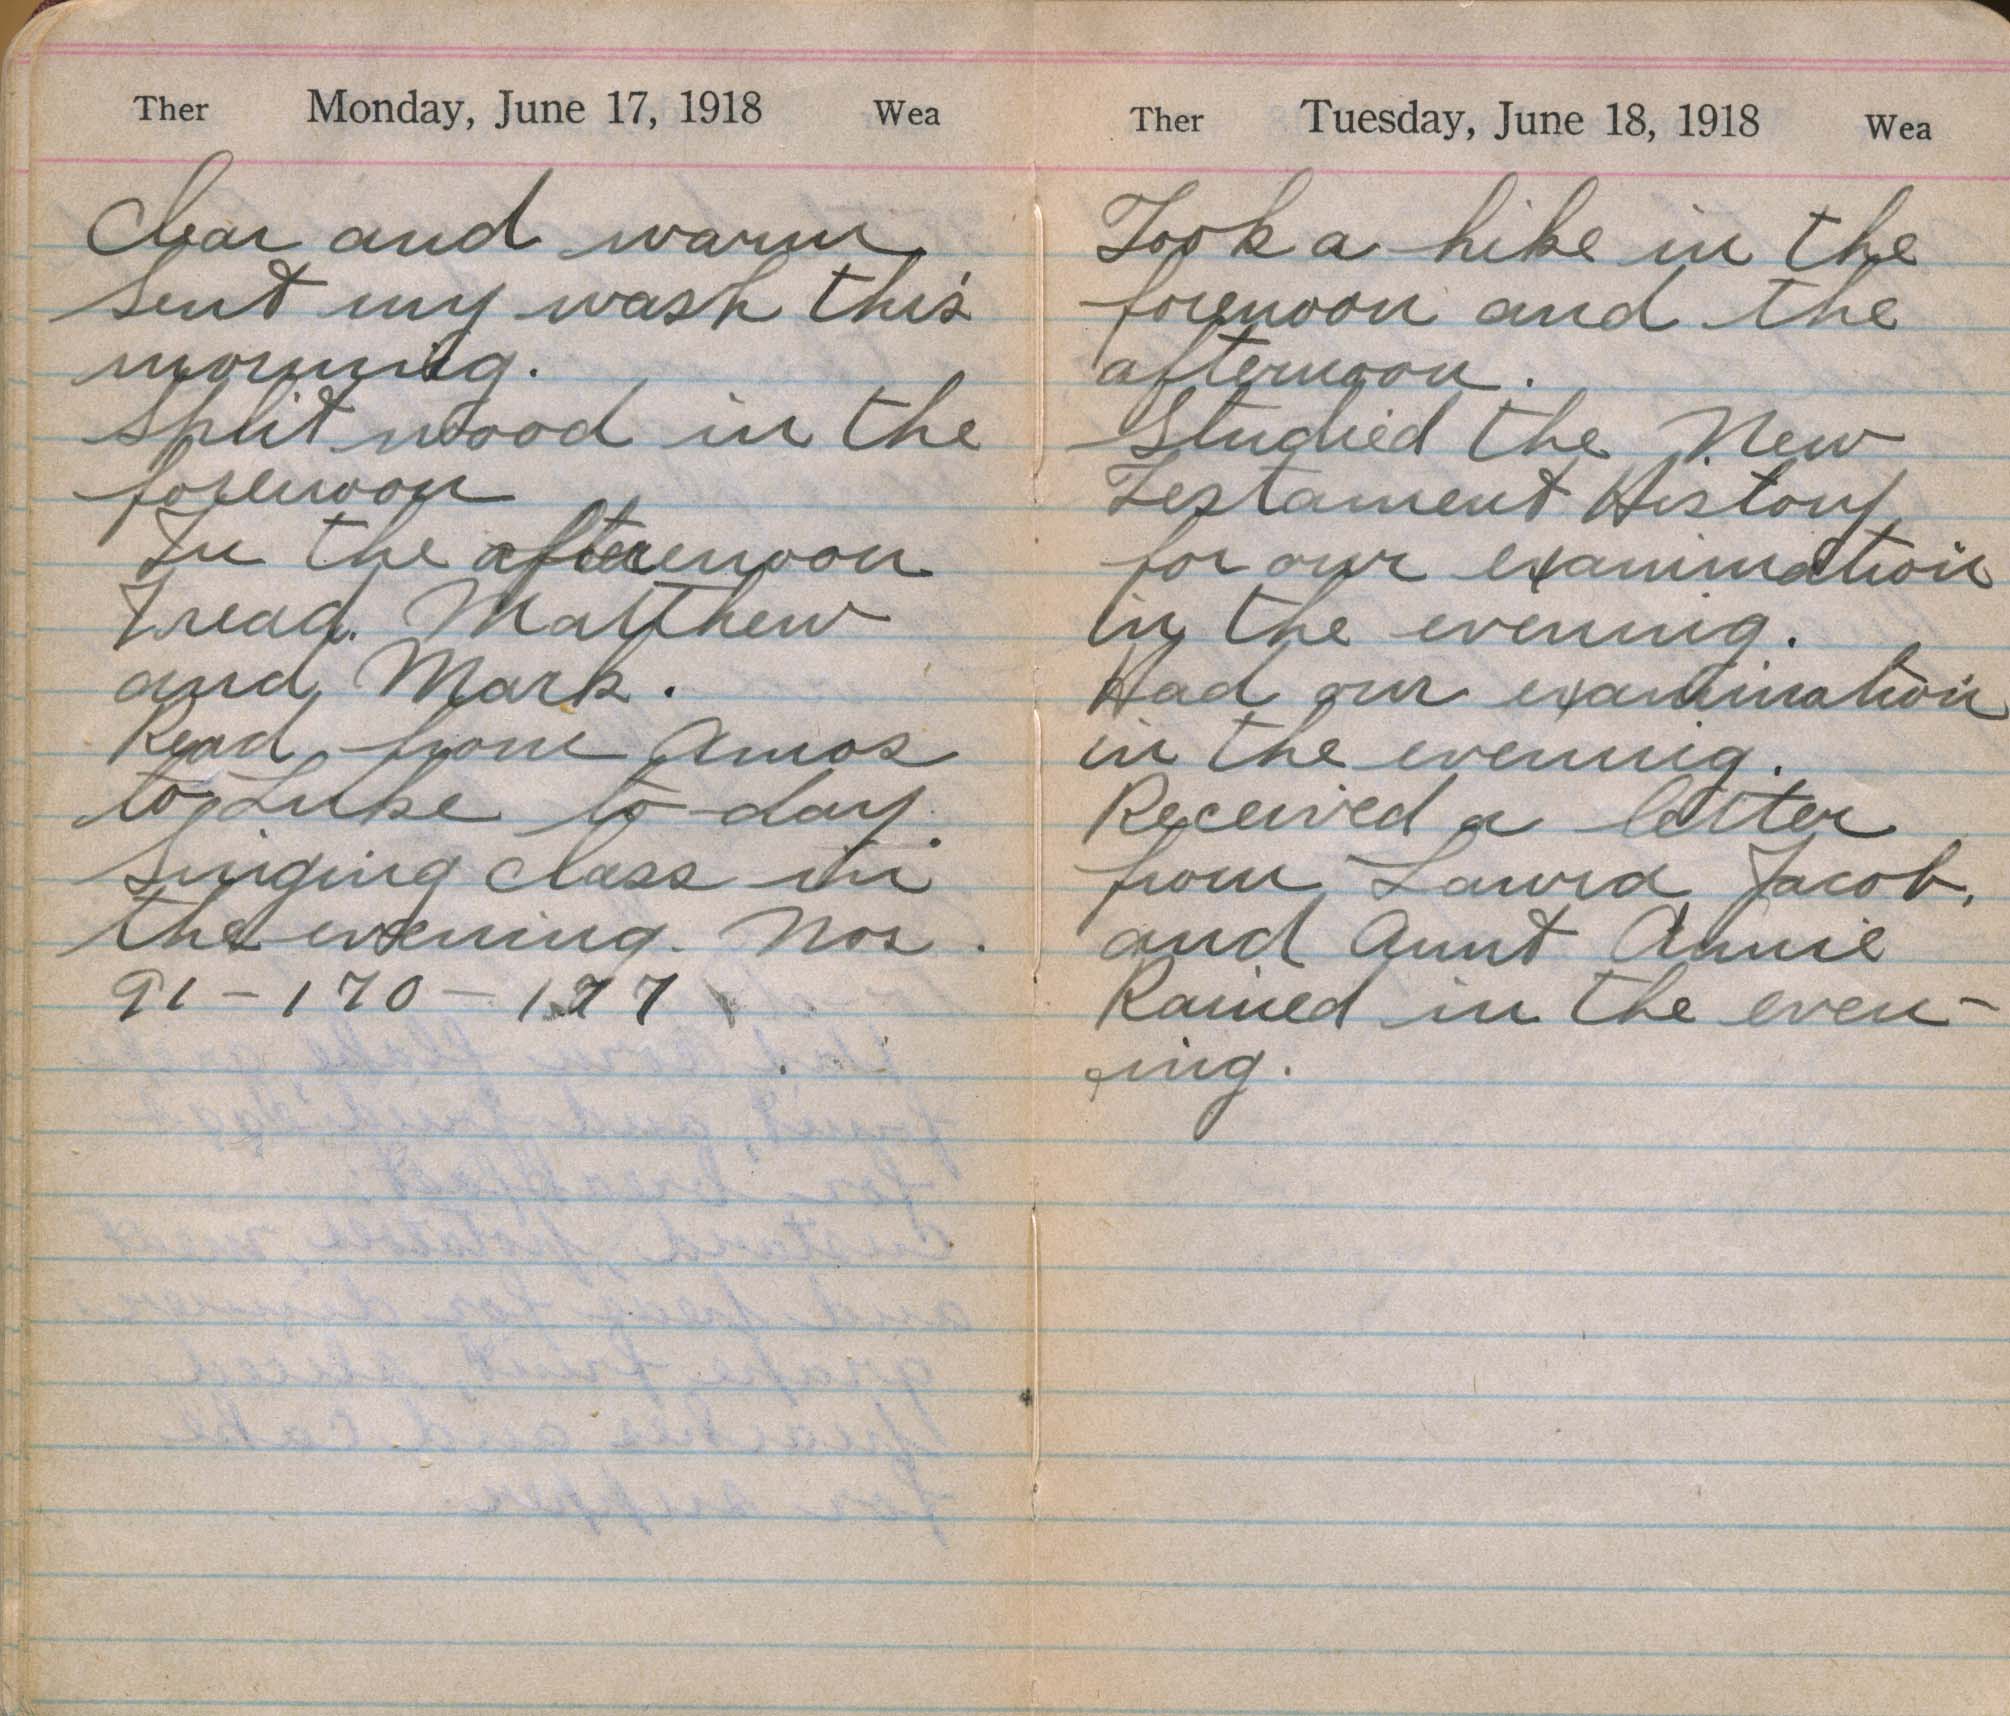 Ther Monday, June 17, 1918 Wea
Clear and warm
Sent my wash this
morning.
Split wood in the
forenoon
In the afterenoon
I read. Matthew
and Mark.
Read from Amos
to Luke to-day.
Singing class in
the evening. Nos.
91-170-177
Ther Tuesday, June 18, 1918 Wea
Took a hike in the
forenoon and the
afternoon.
Studied the New
Testament History
for our examination
in the evening.
Had our examination
in the evening.
Received a letter
from Laura Jacob,
and Aunt Annie
Rained in the even-
ing.